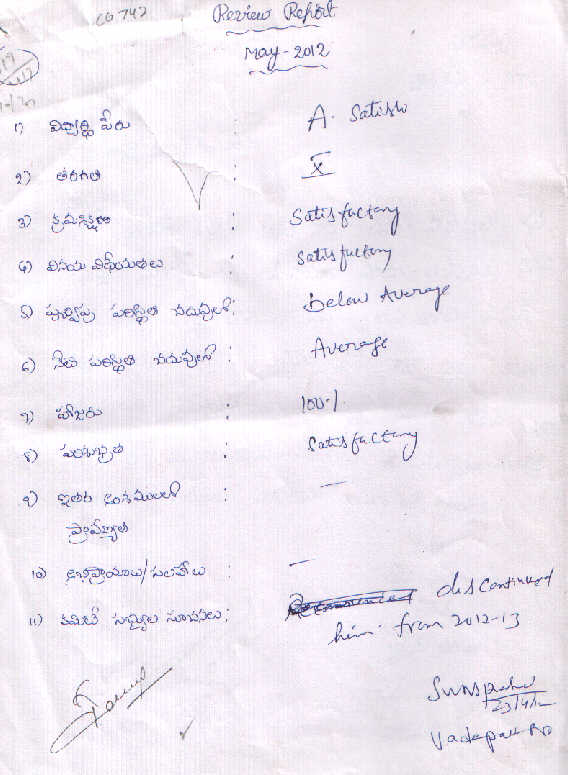 CG 742
Review Report
May-2012
1) విద్యార్థి పేరు : A. Satish
2) తరగతి : X
3) క్రమశిక్షణ : Satisfactory
4) వినయ విధేయతలు : Satisfactory
5) పూర్వపు పరిస్థితి చదువులో : Below Average
6) నేటి పరిస్థితి చదువులో : Average
7) హాజరు : 100%
8) పరిశుభ్రత : Satisfactory
9) ఇతర అంశములలో : —
ప్రావీణ్యత
10) అభిప్రాయాలు/సలహాలు : —
11) కమిటీ సభ్యుల సూచనలు : discontinued
him from 2012-13
23/4/12